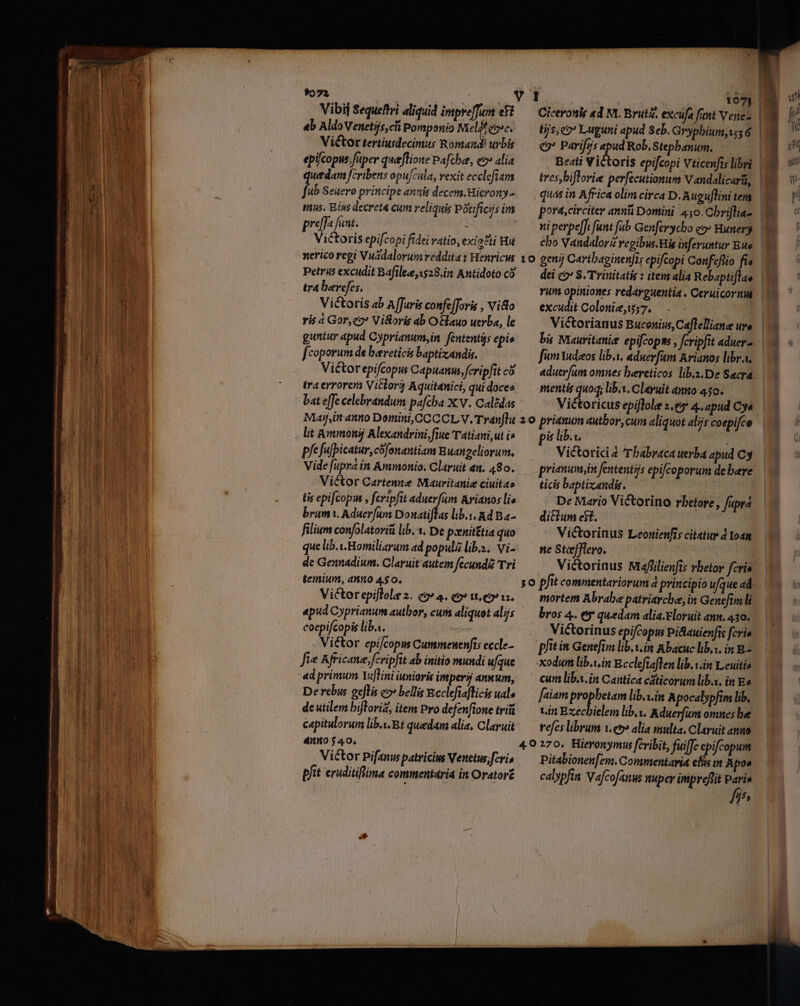 1072 V I 1073
Vibij Sequeſtri aliquid impreſſum eſt
ab Aldo Venetijs, cũ Pomponio Mela &c.
Victor tertiusdecimus Romanæ urbis
epiſcopus, ſuper quæſtione Paſchæ, & alia
quædam ſcribens opuſcula, rexit eccleſiam
ſub Seuero principe annis decem. Hierony-
mus. Eius decreta cum reliquis Põtificijs im
preſſa ſunt.
Victoris epiſcopi fidei ratio, exigẽti Hu
nerico regi Vuãdalorum reddita: Henricus
Petrus excudit Baſileæ, 1528. in Antidoto cõ
tra hæreſes.
Victoris ab Aſſuris confeſſoris, Victo
ris à Gor, & Victoris ab Octauo uerba, le
guntur apud Cyprianum, in ſententijs epis
ſcoporum de hæreticis baptizandis.
Victor epiſcopus Capuanus, ſcripſit cõ
tra errorem Victorij Aquitanici, qui doces
bat eſſe celebrandum paſcha XV. Calẽdas
Maij, in anno Domini, CCCCLV. Tranſtu
lit Ammonij Alexandrini, ſiue Tatiani, ut is
pſe ſuſpicatur, cõſonantiam Euangeliorum.
Vide ſupra in Ammonio. Claruit an. 480.
Victor Cartennæ Mauritaniæ ciuitas
tis epiſcopus, ſcripſit aduerſum Arianos lis
brum 1. Aduerſum Donatiſtas lib. 1. Ad Ba-
ſilium conſolatoriũ lib. 1. De pœnitẽtia quo
que lib. 1. Homiliarum ad populũ lib. 2. Vi-
de Gennadium. Claruit autem ſecundũ Tri
temium, anno 450.
Victor epiſtolæ 2. & 4. & 11. & 12.
apud Cyprianum author, cum aliquot alijs
coepiſcopis lib. 1.
Victor epiſcopus Cummenenſis eccle-
ſiæ Africanæ, ſcripſit ab initio mundi uſque
ad primum Iuſtini iunioris imperij annum,
De rebus geſtis & bellis Eccleſiaſticis uals
de utilem hiſtoriã, item Pro defenſione triũ
capitulorum lib. 1. Et quædam alia. Claruit
anno 540.
Victor Piſanus patricius Venetus, ſcris
pſit eruditiſsima commentaria in Oratorẽ
Ciceronis ad M. Brutũ, excuſa ſunt Vene-
tijs, & Luguni apud Seb. Gryphium, 1536
& Pariſijs apud Rob. Stephanum.
Beati Victoris epiſcopi Vticenſis libri
tres, hiſtoriæ perſecutionum Vandalicarũ,
quas in Africa olim circa D. Auguſtini tem
pora, circiter annũ Domini 430. Chriſtia-
ni perpeſsi ſunt ſub Genſerycho & Hunery
cho Vandalorũ regibus. His inſeruntur Eus
10 genij Carthaginenſis epiſcopi Confeſsio fis
dei & S. Trinitatis: item alia Rebaptiſtas
rum opiniones redarguentia. Ceruicornus
excudit Coloniæ, 1537.
Victorianus Buconius, Caſtellianæ urs
bis Mauritaniæ epiſcopus, ſcripſit aduer-
ſum Iudæos lib. 1. aduerſum Arianos libr. 1.
aduerſum omnes hæreticos lib. 2. De Sacra
mentis quoq; lib. 1. Claruit anno 450.
Victoricus epiſtolæ 2. & 4. apud Cys
20 prianum author, cum aliquot alijs coepiſco
pis lib. 1.
Victorici à Thabraca uerba apud Cy
prianum, in ſententijs epiſcoporum de hære
ticis baptizandis.
De Mario Victorino rhetore, ſupra
dictum eſt.
Victorinus Leonienſis citatur à Ioan
ne Stœfflero.
Victorinus Maſsilienſis rhetor ſcris
30 pſit commentariorum à principio uſque ad
mortem Abrahæ patriarchæ, in Geneſim li
bros 4. & quædam alia. Floruit ann. 430.
Victorinus epiſcopus Pictauienſis ſcris
pſit in Geneſim lib. 1. in Abacuc lib. 1. in E-
xodum lib. 1. in Eccleſiaſten lib. 1. in Leuitis
cum lib. 1. in Cantica cãticorum lib. 1. in Es
ſaiam prophetam lib. 1. in Apocalypſim lib.
1. in Ezechielem lib. 1. Aduerſum omnes hæ
reſes librum 1. & alia multa. Claruit anno
40 270. Hieronymus ſcribit, fuiſſe epiſcopum
Pitabionenſem. Commentaria eius in Apos
calypſin Vaſcoſanus nuper impreſsit Paris
ſijs,